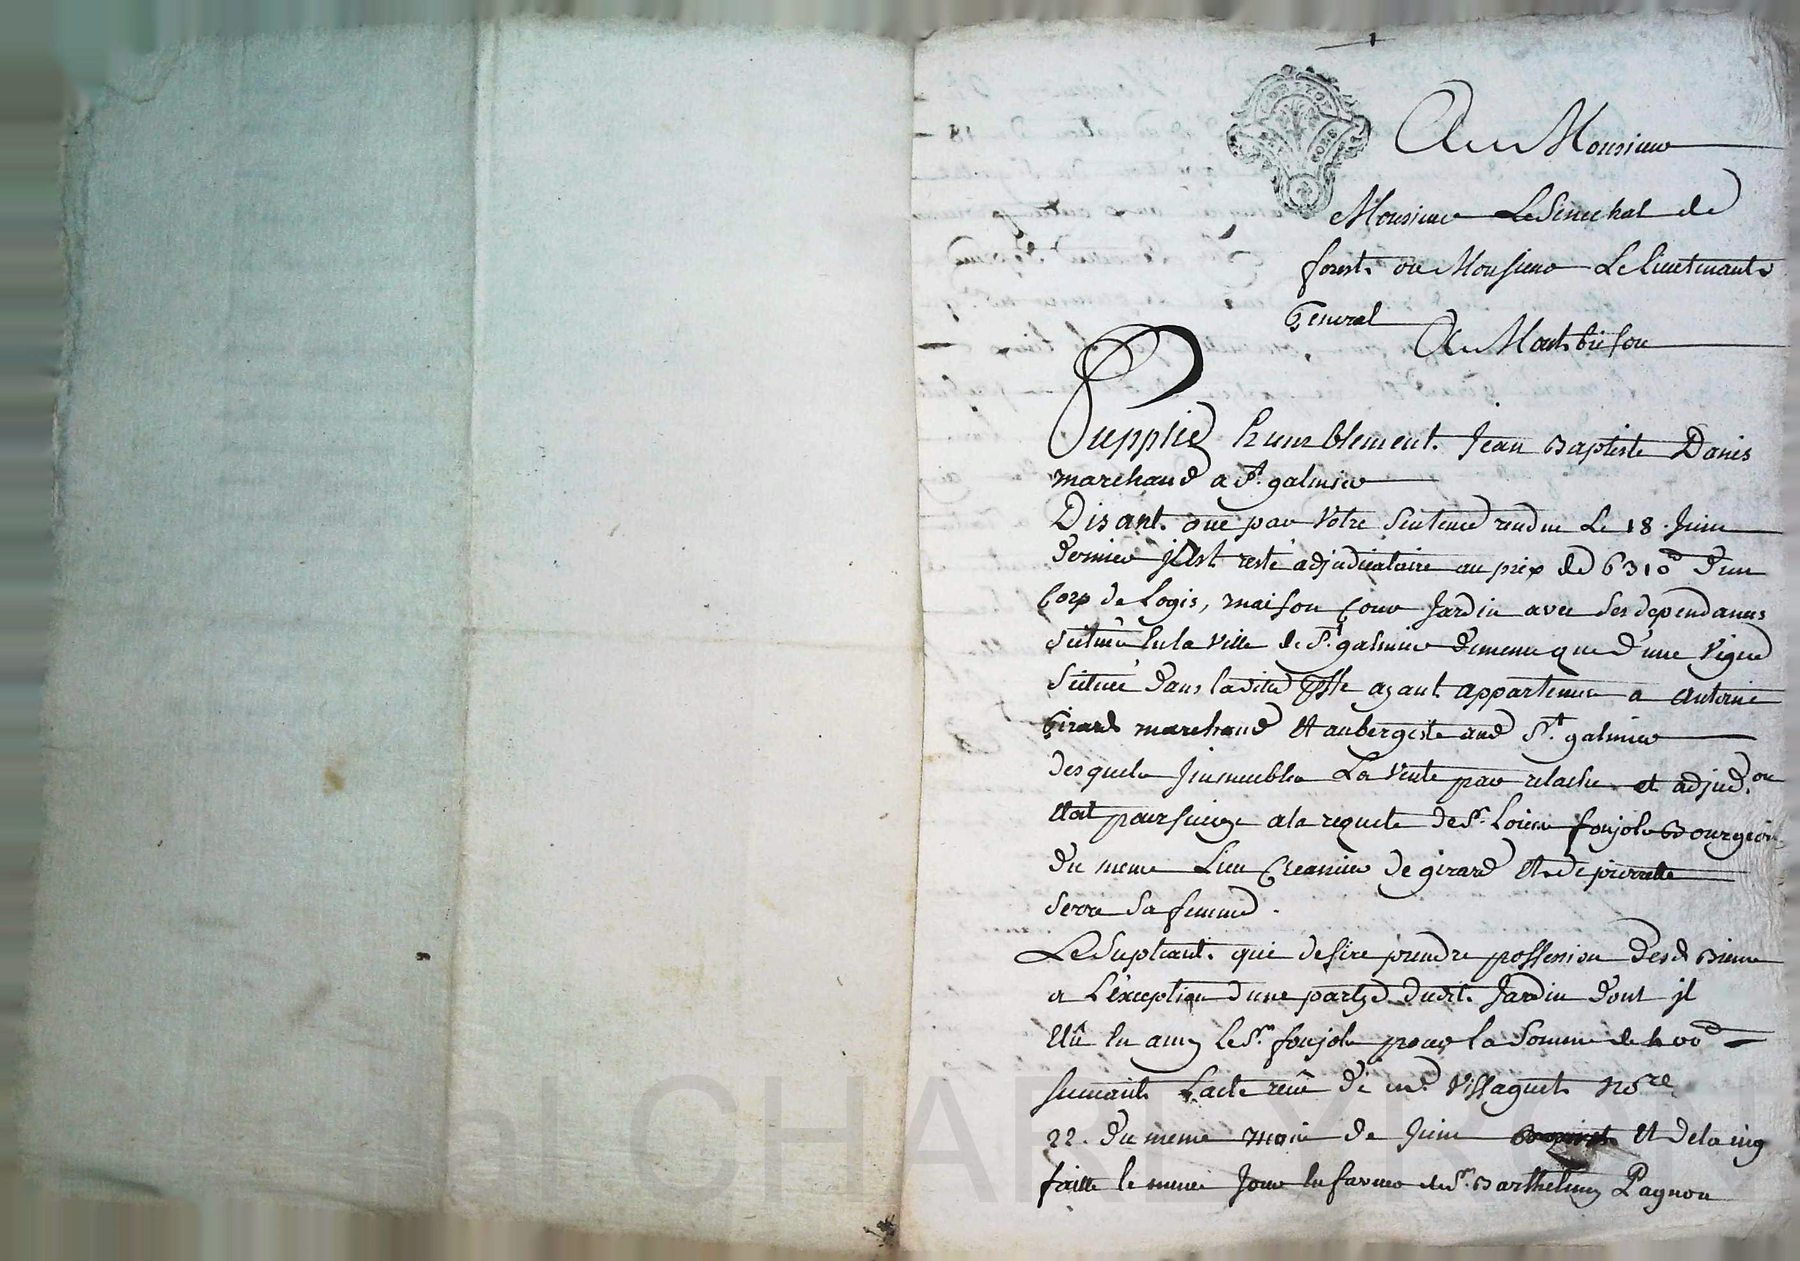 1
A Monsieur
Monsieur Le Senechal de
forest ou Monsieur Le lieutenant
General
A Montbrison
Supplie humblement Jean Baptiste Danis
marchand a St galmier
Disant que par Votre Sentence rendue Le 18 Juin
dernier jl est resté adjudicataire au prix de 6310# d'un
Corp de Logis, maison Cour Jardin avec ses dependances
scitué en la Ville de St galmier de meme que d'une Vigne
Scitué dans la dite ayant appartenue a antoine
Girard marchand et aubergiste aud St galmier
desquels Jmmeubles La Vente par relache et adjud.on
etoit poursuivye a la requete de Sr Louis foujols Bourgeois
du meme Lieu Creancier de girard et de pierrette
Serre Sa femme.
Le Supliant qui desire prendre possession desd Biens
a L'exception d'une partye dudit Jardin dont jl
elû en amy Le Sr foujols pour la Somme de 400#
suivant L'acte reçû de me Vissaguet No.re
22 du meme mois de Juin et de la
faitte le meme Jour en faveur de Sr Barthelmy Pagnon
CHARLYRON